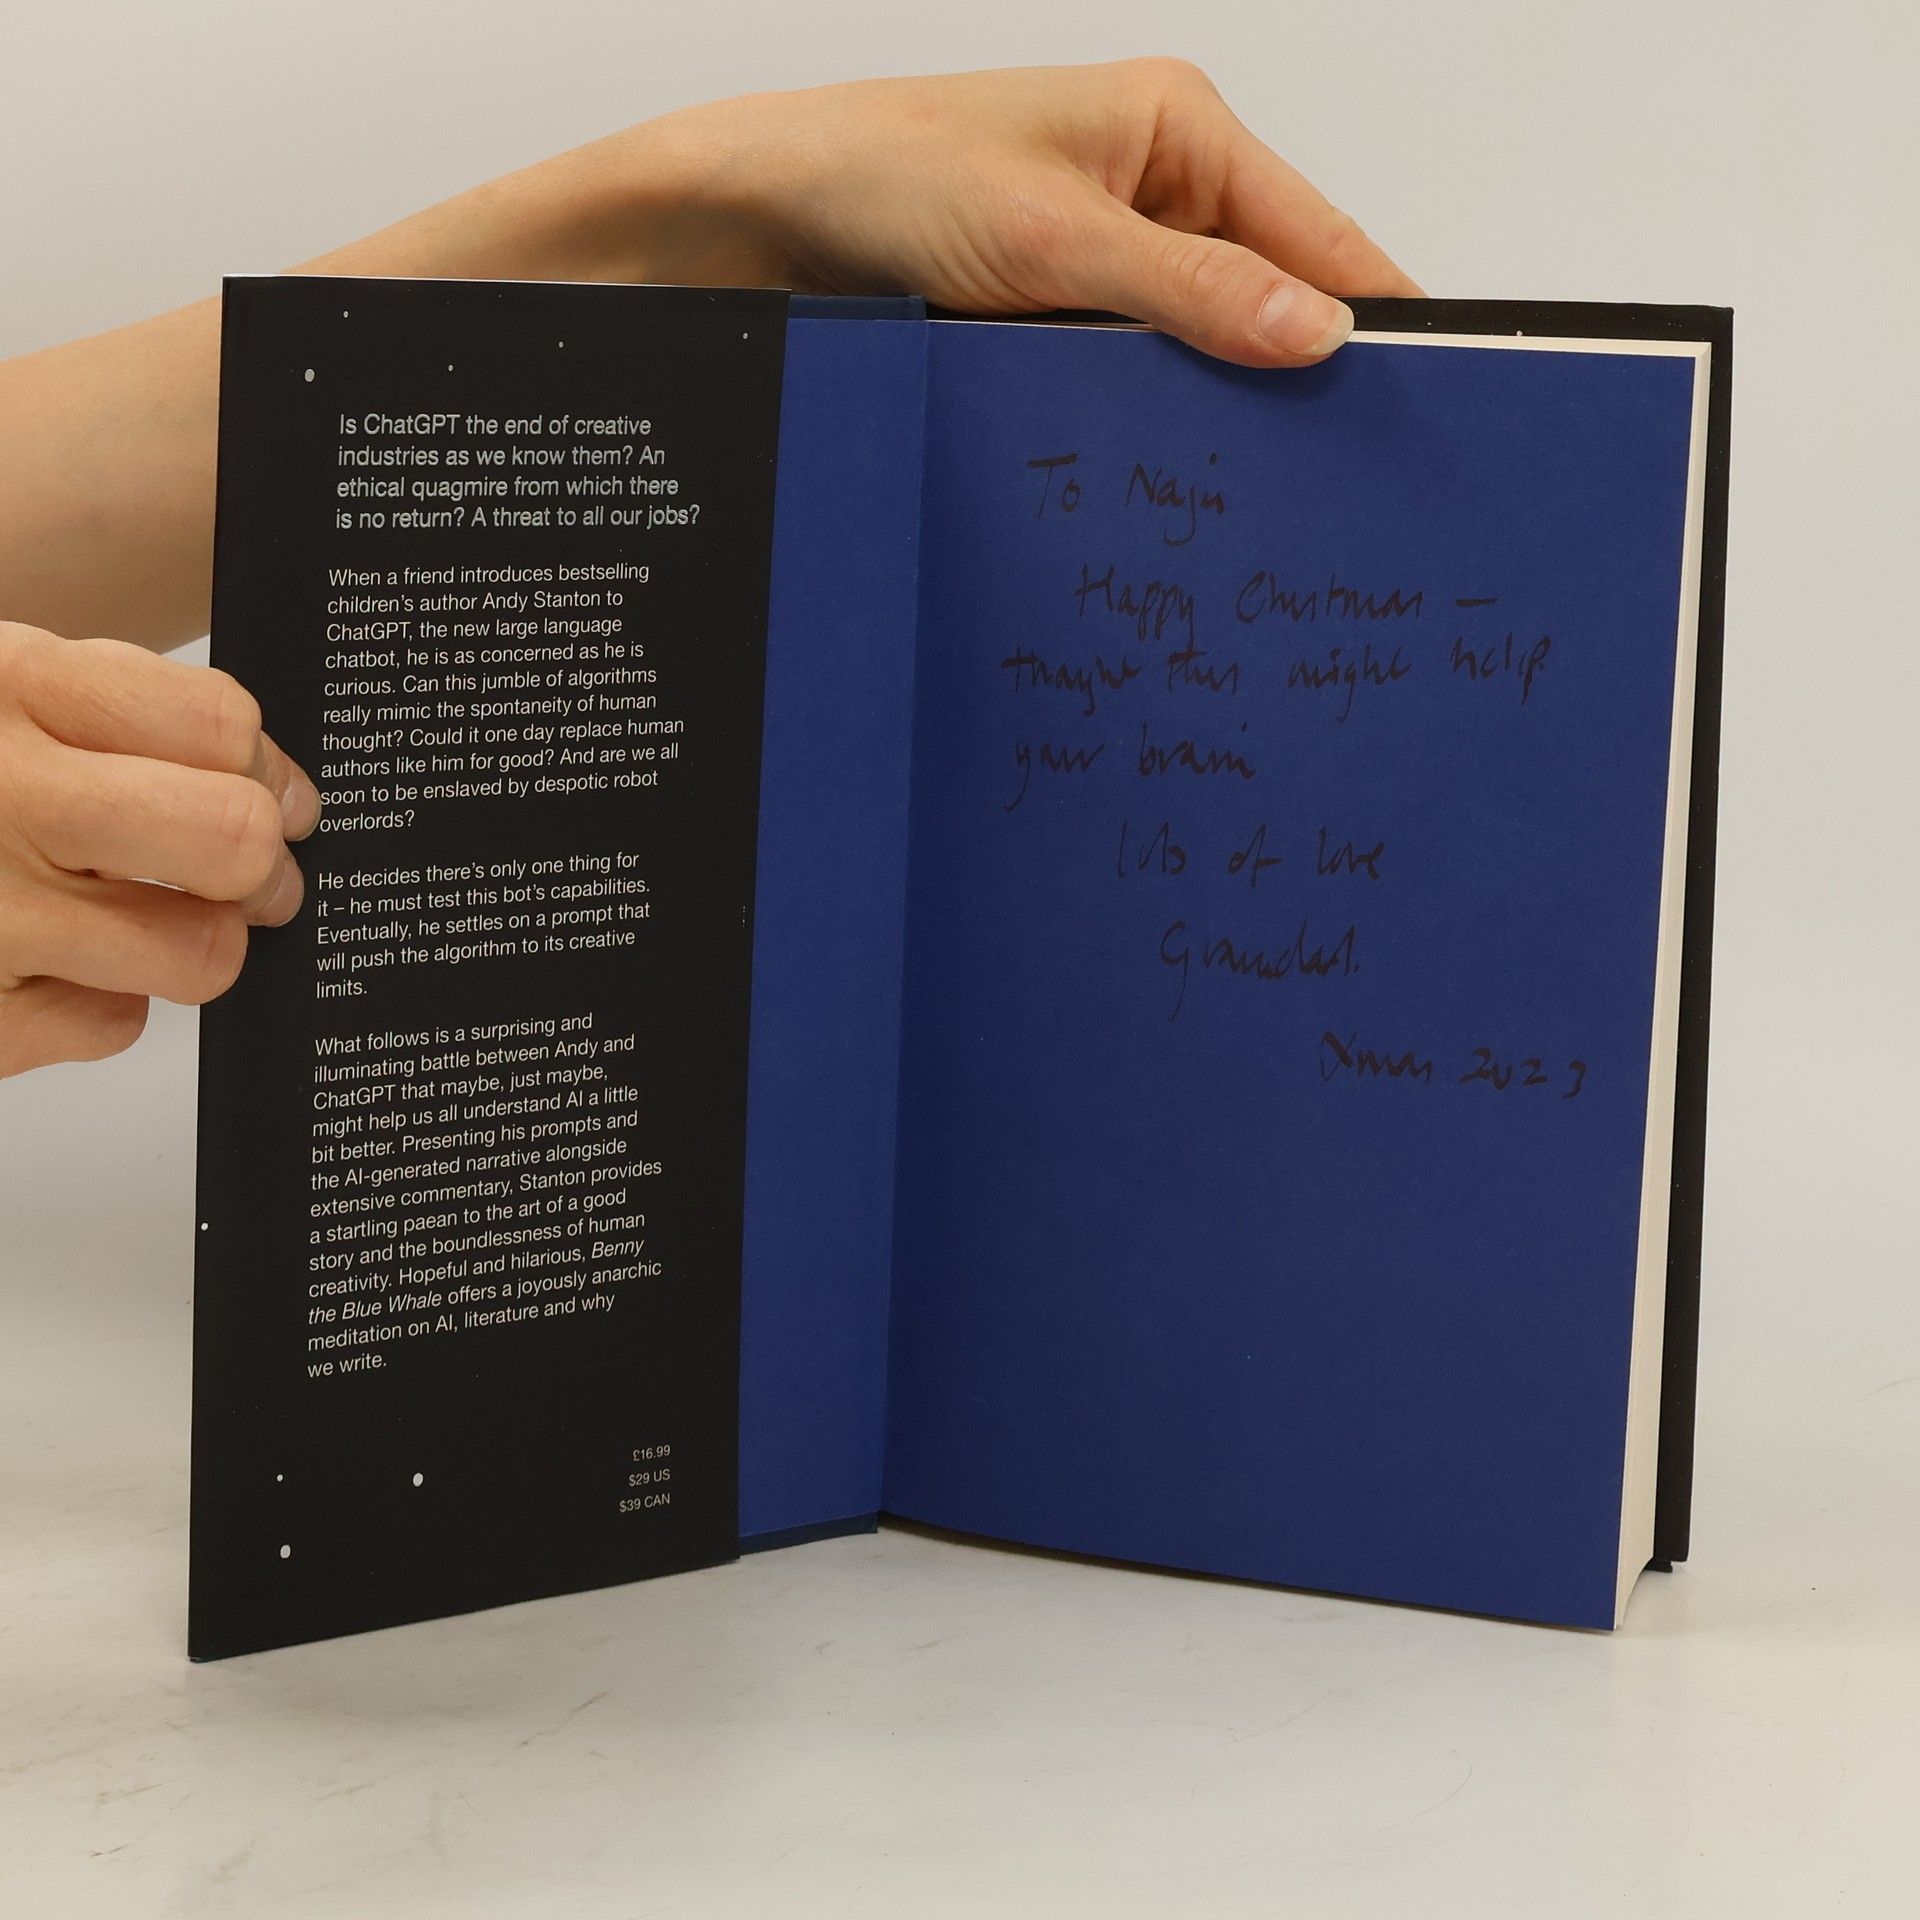 Is ChatGPT the end of creative
industries as we know them? An
ethical quagmire from which there
is no return? A threat to all our jobs?
When a friend introduces bestselling
children's author Andy Stanton to
ChatGPT, the new large language
chatbot, he is as concerned as he is
curious. Can this jumble of algorithms
really mimic the spontaneity of human
thought? Could it one day replace human
authors like him for good? And are we all
soon to be enslaved by despotic robot
overlords?
He decides there's only one thing for
it – he must test this bot's capabilities.
Eventually, he settles on a prompt that
will push the algorithm to its creative
limits.
What follows is a surprising and
illuminating battle between Andy and
ChatGPT that maybe, just maybe,
might help us all understand AI a little
bit better. Presenting his prompts and
the AI-generated narrative alongside
extensive commentary, Stanton provides
a startling paean to the art of a good
story and the boundlessness of human
creativity. Hopeful and hilarious, Benny
the Blue Whale offers a joyously anarchic
meditation on AI, literature and why
we write.
£16.99
$29 US
$39 CAN
To
Happy Christmas –
maybe this might help
your brain
lots of love
Grandad.
Xmas 2023